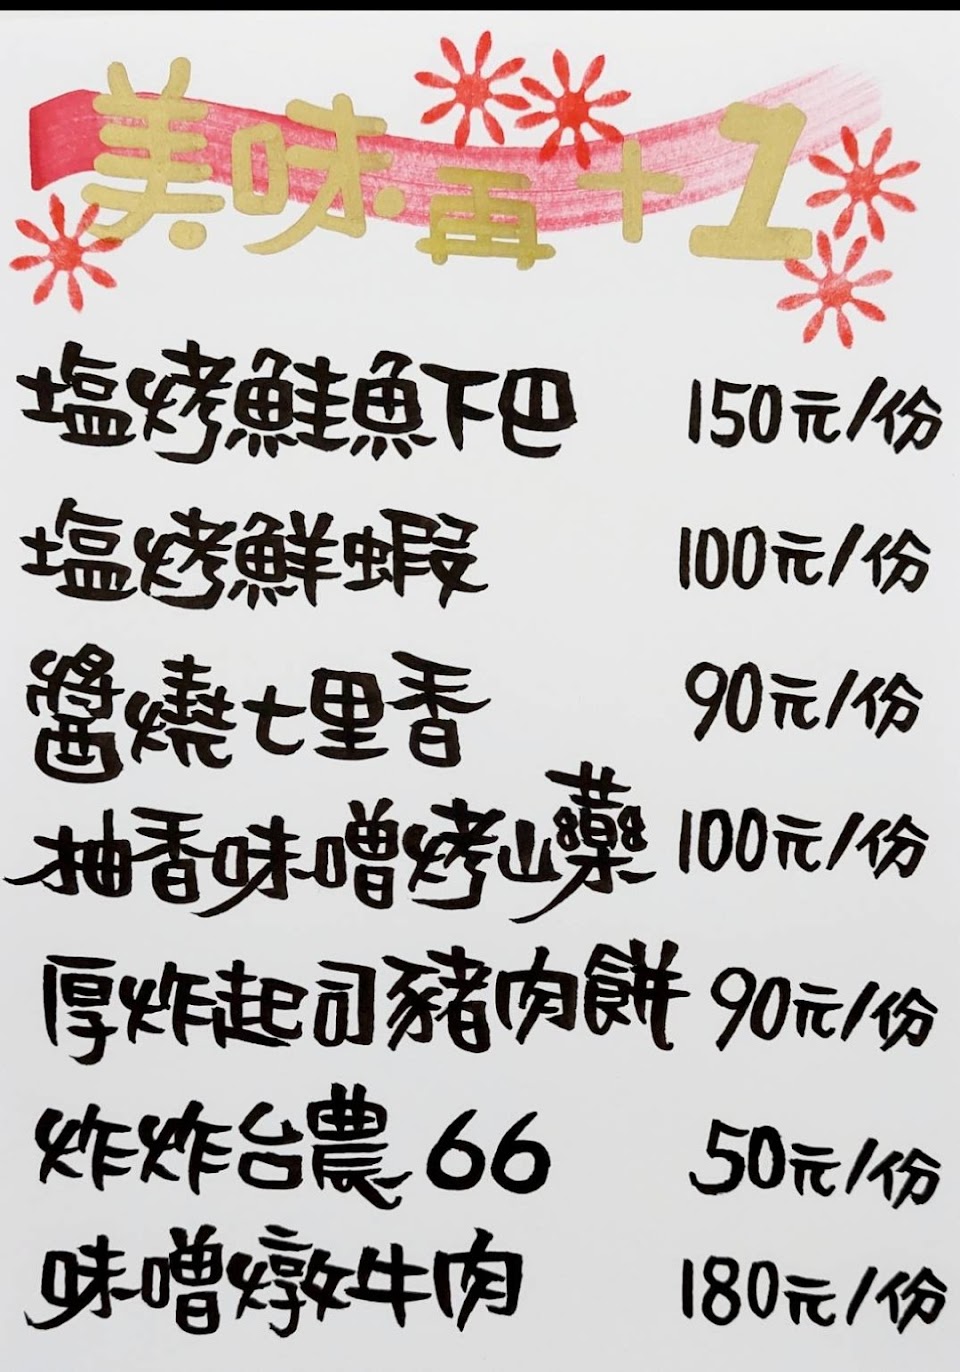 美味再+1
塩烤鮭魚下巴 150元/份
塩烤鮮蝦 100元/份
醬燒七里香 90元/份
柚香味噌烤山藥 100元/份
厚炸起司豬肉餅 90元/份
炸炸台農66 50元/份
味噌燉牛肉 180元/份